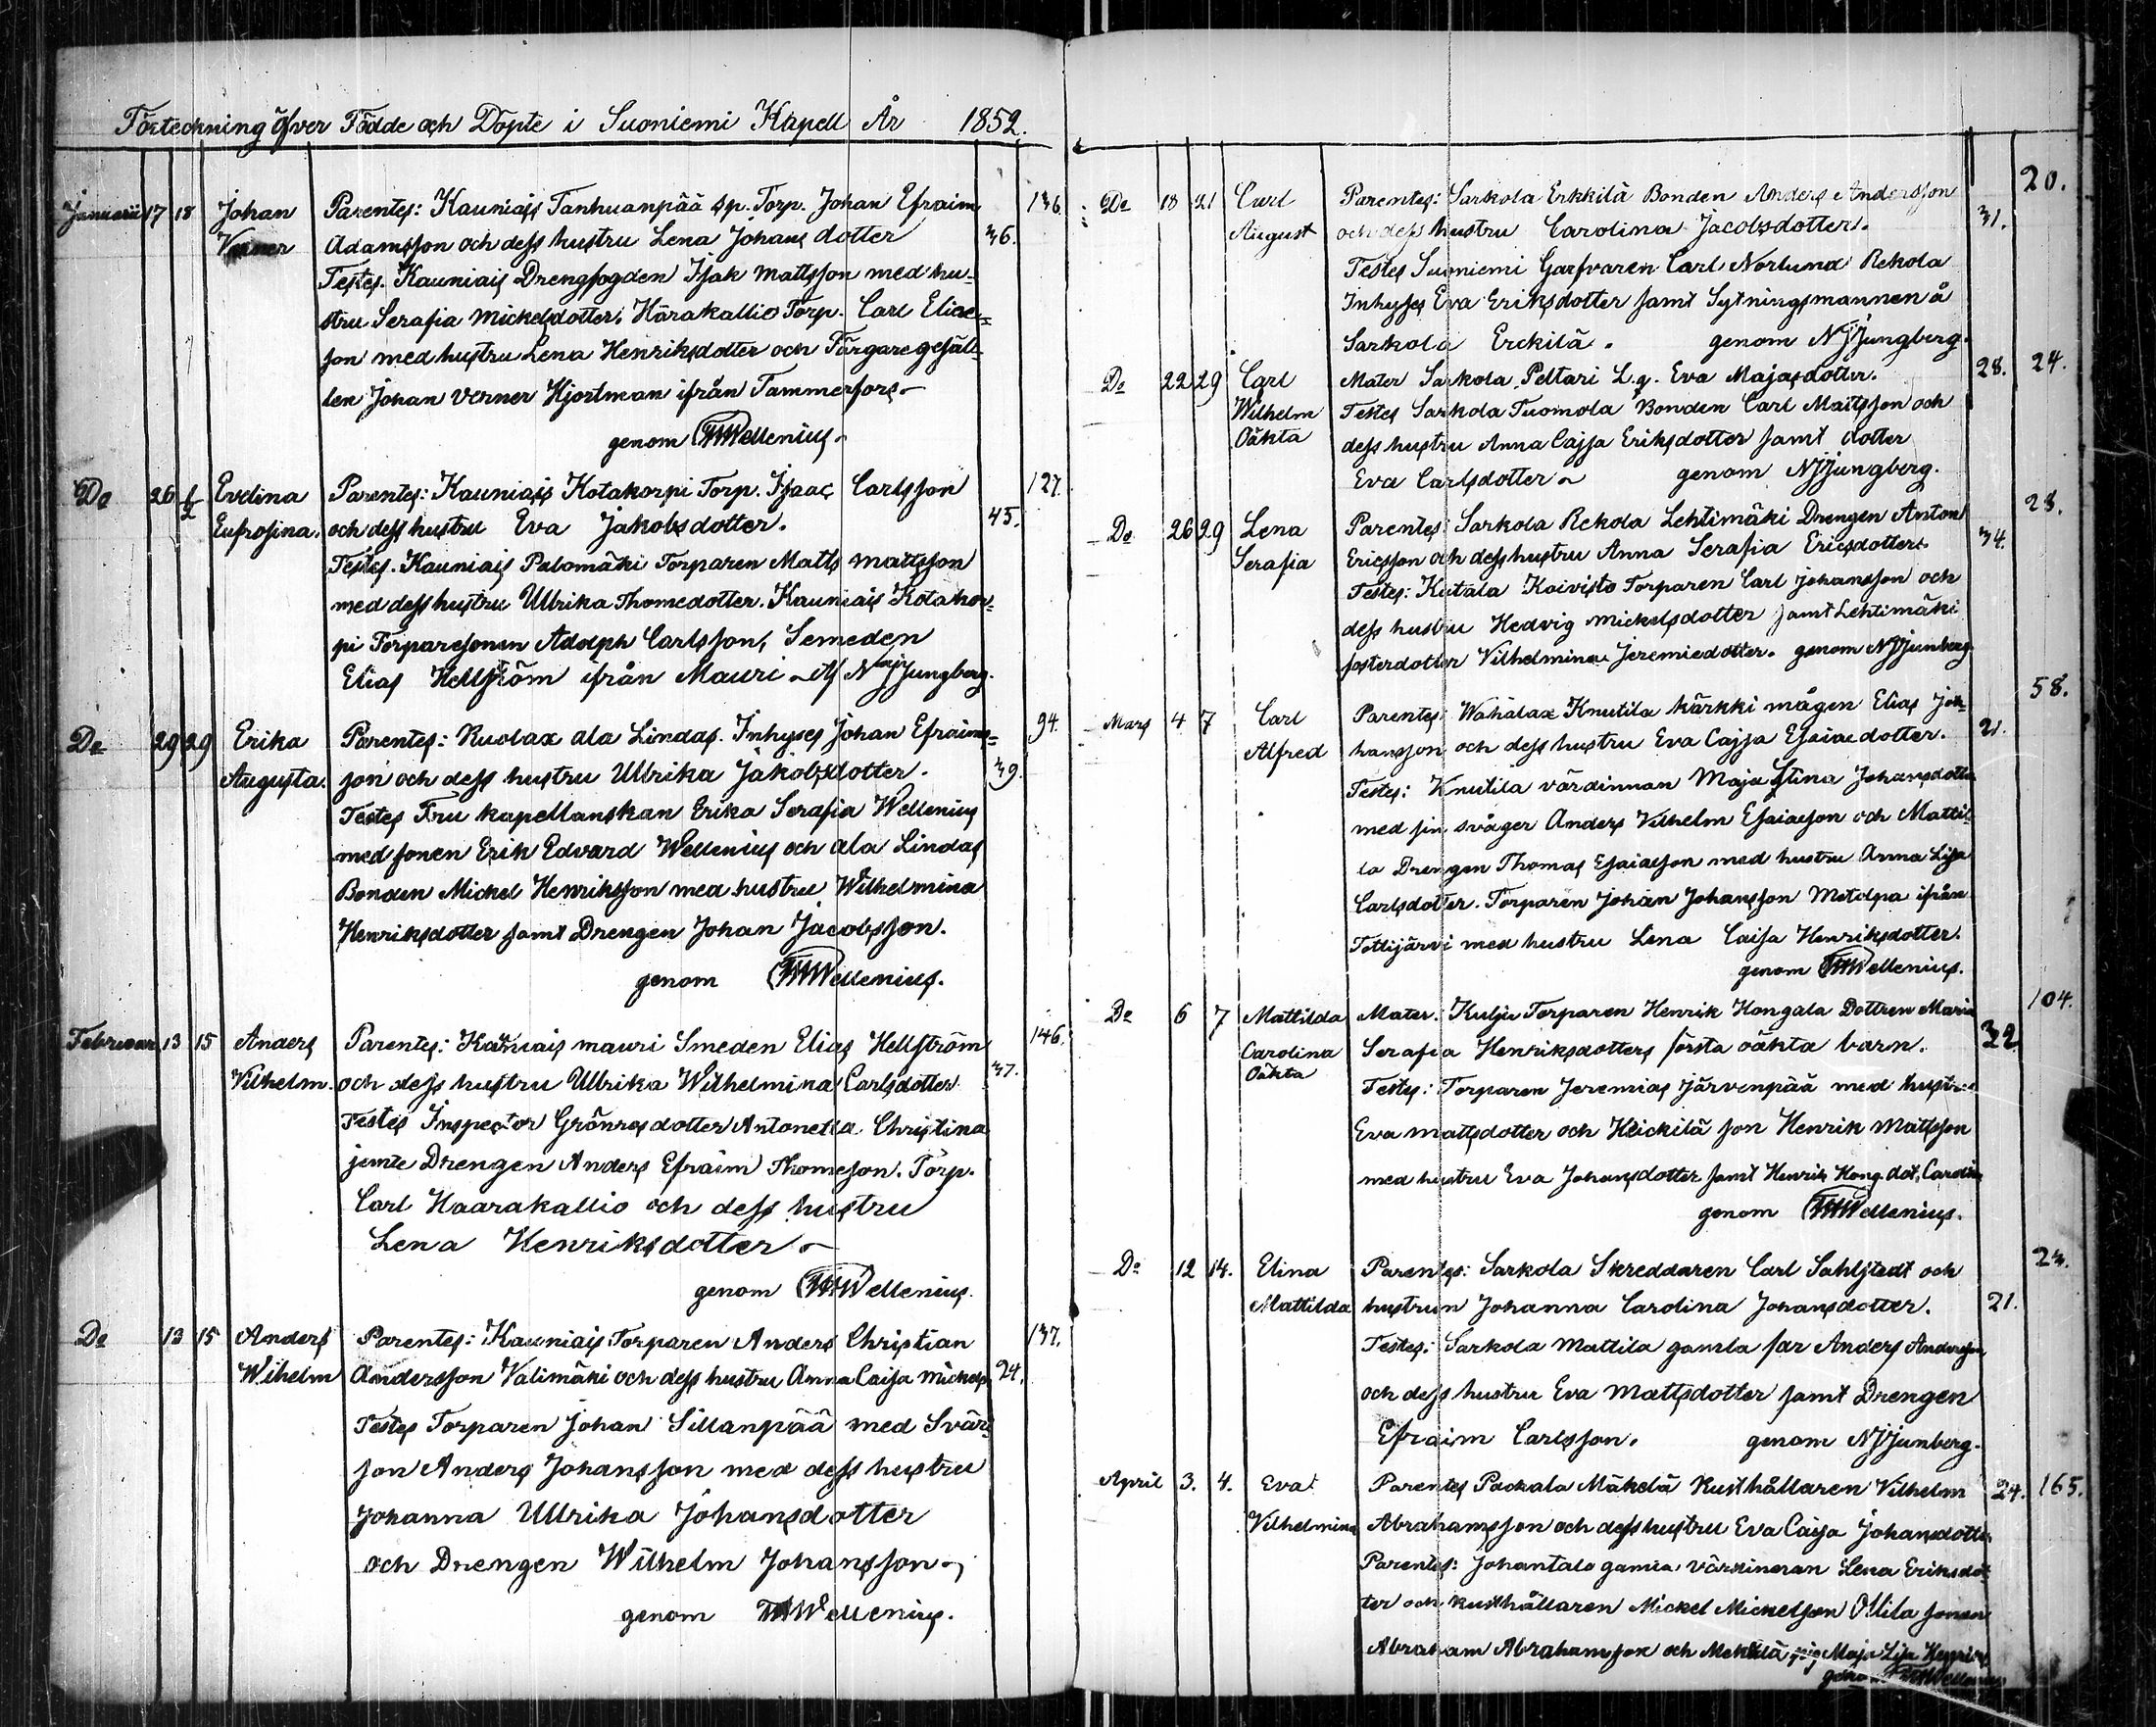 Förteckning öfver Födde och Döpte i Suoniemi Kapell År 1852.
Januari 17 18 Johan Parentes: Kauniais Tanhuanpää sp. Torp. Johan Efraim 136.
Verner Adamsson och dess hustru Lena Johans dotter 36.
Testes. Kauniais Drengfogden Isak Mattsson med hu-
stru Serafia Mickelsdotter. Härakallio Torp. Carl Elias-
son med hustru Lena Henriksdotter och Färgaregesäl-
len Johan Verner Hjortman ifrån Tammerfors
genom Wellenius
Do 26 1/2 Evelina Parentes: Kauniais Kotakorpi Torp. Isaac Carlsson 127.
Eufrosina. och dess hustru Eva Jakobsdotter. 45.
Testes. Kauniais Palomäki Torparen Matts Mattsson
med dess hustru Ullrika Thomedotter. Kauniais Kotakor-
pi Torparesonen Adolph Carlsson, Semeden
Elias Hellström ifrån Mauri Af N Jjungberg.
Do 29 29 Erika Parentes: Kuolax ala Lindas. Inhyses Johan Efraims- 94.
Augusta. son och dess hustru Ullrika Jakobsdotter. 39.
Testes Fru kapellanskan Erika Serafia Wellenius
med sonen Erik Edvard Wellenius och ala Lindas
Bonden Mickel Henriksson med hustru Wilhelmina
Henriksdotter samt Drengen Johan Jacobsson.
genom Wellenius.
Februari 13 15 Anders Parentes: Kauniais Mauri Smeden Elias Hellström 146.
Vilhelm. och dess hustru Ullrika Wilhelmina Carlsdotter 37.
Testes Inspector Grönros dotter Antonetta Christina
jemte Drengen Anders Efraim Thomeson. Torp.
Carl Haarakallio och dess hustru
Lena Henriksdotter
genom Wellenius.
Do 13 15 Anders Parentes: Kauniais Torparen Anders Christian 137.
Wihelm Andersson Valimäki och dess hustru Anna Caisa Mickels 24.
Testes Torparen Johan Sillanpää med Svär-
son Anders Johansson med dess hustru
Johanna Ullrika Johansdotter
och Drengen Wilhelm Johansson
genom Wellenius.
Do 18 21 Carl Parentes: Sarkola Erkkilä Bonden Anders Andersson 20.
August och dess hustru Carolina Jacobsdotter. 31.
Testes Suoniemi Garfvaren Carl Norlund Rekola
Inhyses Eva Eriksdotter samt Sytningsmannen å
Sarkola Erckilä. genom N Jjungberg.
Do 22 29 Carl Mater Sarkola Peltari L.q. Eva Majasdotter. 28. 24.
Wilhelm Testes Sarkola Tuomola Bonden Carl Mattsson och
Oäkta dess hustru Anna Cajsa Eriksdotter samt dotter
Eva Carlsdotter genom N Jjungberg.
Do 26 29 Lena Parentes: Sarkola Rekola Lehtimäki Drengen Anton 23.
Serafia Ericsson och dess hustru Anna Serafia Ericsdotter 34.
Testes: Kutala Koivisto Torparen Carl Johansson och
dess hustru Hedvig Mickelsdotter samt Lehtimäki
fosterdotter Vilhelmina Jeremiedotter. genom N Jjunberg
Mars 4 7 Carl Parentes: Wahalax Knutila kärkki mågen Elias Joh- 58.
Alfred hansson och dess hustru Eva Cajsa Esaiaedotter. 21.
Testes: Knutila värdinnan Maja Stina Johansdotter
med sin svåger Anders Vilhelm Esaiaeson och Matti-
la Drengen Thomas Esaiaeson med hustru Anna Lisa
Carlsdotter. Torparen Johan Johansson Metolpa ifrån
Tottijärvi med hustru Lena Caisa Henriksdotter.
genom Wellenius.
Do 6 7 Mattilda Mater: Kulju Torparen Henrik Hongala Dottren Maria 104.
Carolina Serafia Henriksdotters första oäkta barn. 32
Oäkta Testes: Torparen Jeremias Järvenpää med hustru
Eva Mattsdotter och Heickilä son Henrik Mattsson
med hustru Eva Johansdotter samt Henrik Hong. dot. Carolin
genom Wellenius.
Do 12 14. Elina Parentes: Sarkola Skreddaren Carl Sahlstedt och 23.
Mattilda hustrun Johanna Carolina Johansdotter. 21.
Testes: Sarkola Mattila gamla far Anders Andersson
och dess hustru Eva Mattsdotter samt Drengen
Efraim Carlsson. genom N Jjunberg.
April 3. 4. Eva Parentes Packala Mäkelä Rusthållaren Vilhelm 24. 165.
Vilhelmina Abrahamsson och dess hustru Eva Caisa Johansdotter
Parentes: Johantalo gamla värdinnan Lena Eriksdot-
ter och Rusthållaren Mickel Mickelson Ollila sonen
Abraham Abrahamsson och Mäkelä pig. Maja Lisa Henriks
genom Wellenius